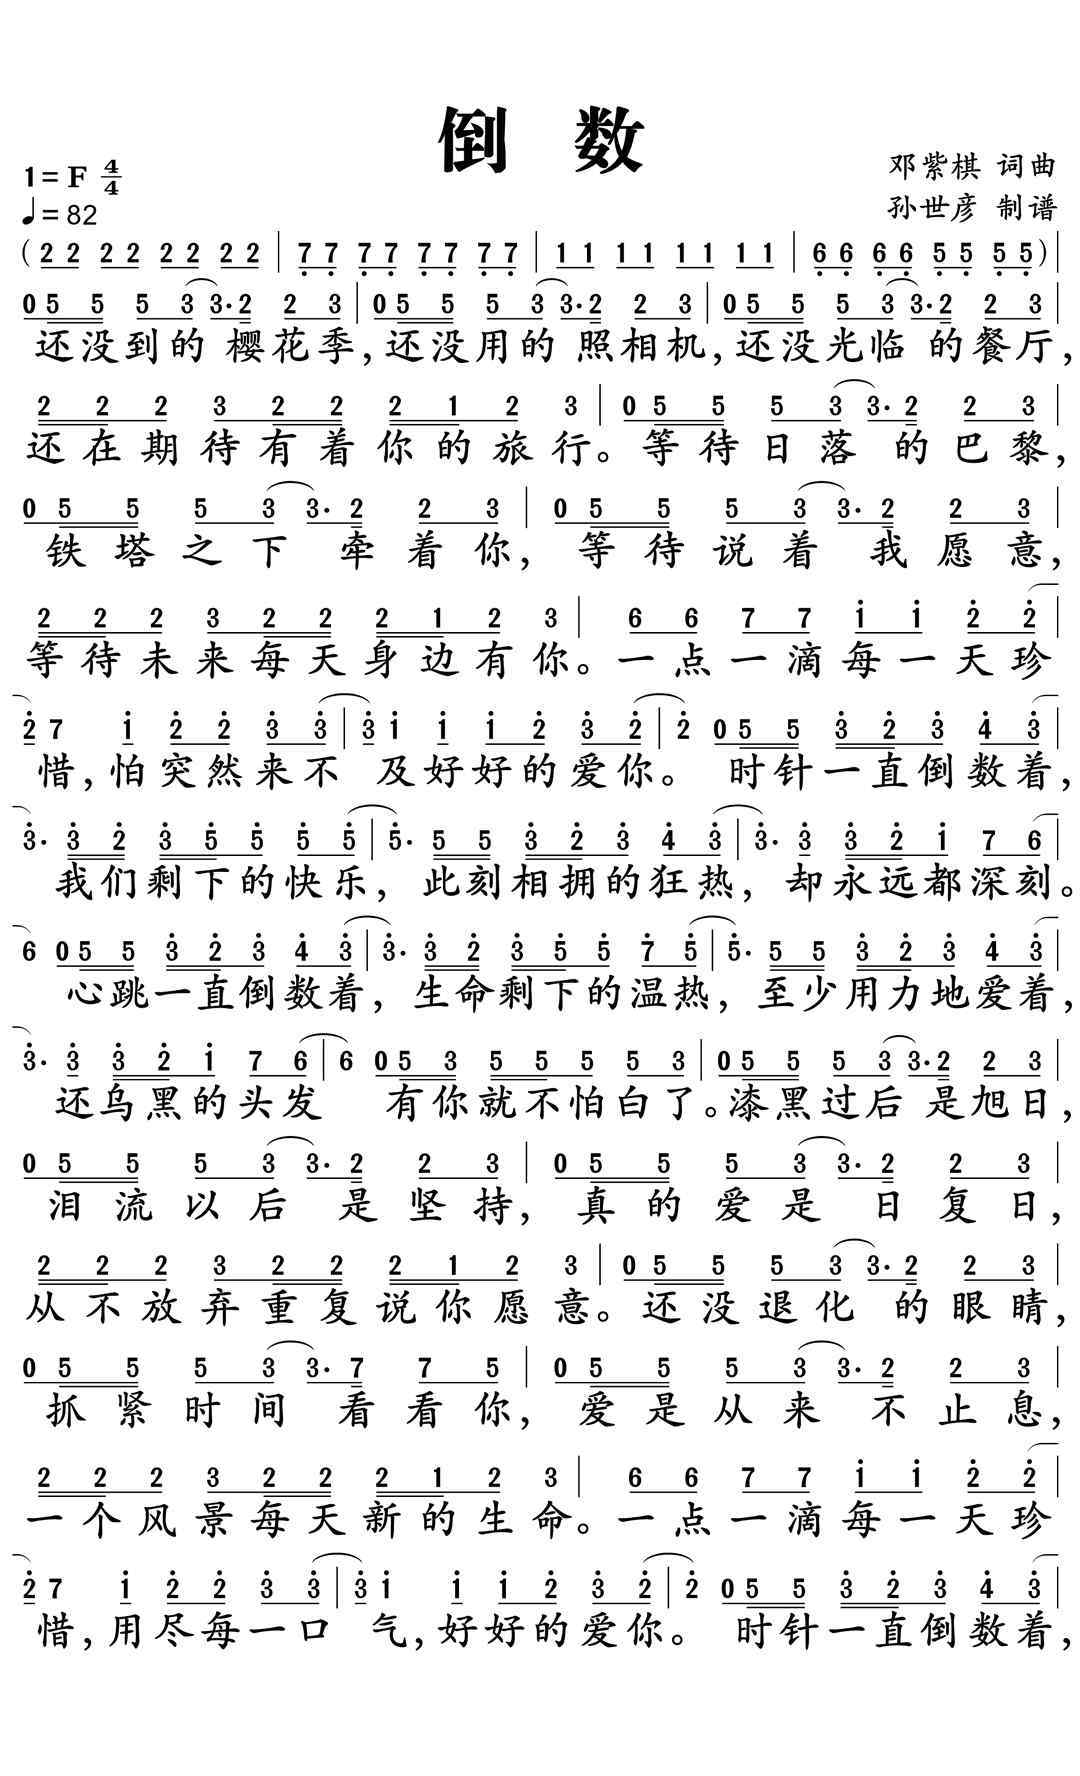 倒 数
1=F 4/4
♩=82
邓紫棋 词曲
孙世彦 制谱
(2 2 2 2 2 2 2 2 | 7̣ 7̣ 7̣ 7̣ 7̣ 7̣ 7̣ 7̣ | 1 1 1 1 1 1 1 1 | 6̣ 6̣ 6̣ 6̣ 5̣ 5̣ 5̣ 5̣) |
0 5 5 5 3 3· 2 2 3 | 0 5 5 5 3 3· 2 2 3 | 0 5 5 5 3 3· 2 2 3 |
还没到的 樱花季,还没用的 照相机,还没光临 的餐厅,
2 2 2 3 2 2 2 1 2 3 | 0 5 5 5 3 3· 2 2 3 |
还在期待有着你的旅行。等待日落 的巴黎,
0 5 5 5 3 3· 2 2 3 | 0 5 5 5 3 3· 2 2 3 |
铁塔之下 牵着你, 等待说着 我愿意,
2 2 2 3 2 2 2 1 2 3 | 6 6 7 7 1̇ 1̇ 2̇ 2̇ |
等待未来每天身边有你。一点一滴每一天珍
2̇ 7 1̇ 2̇ 2̇ 3̇ 3̇ | 3̇ 1̇ 1̇ 1̇ 2̇ 3̇ 2̇ | 2̇ 0 5 5 3̇ 2̇ 3̇ 4̇ 3̇ |
惜,怕突然来不 及好好的爱你。 时针一直倒数着,
3̇· 3̇ 2̇ 3̇ 5̇ 5̇ 5̇ 5̇ | 5̇· 5 5 3̇ 2̇ 3̇ 4̇ 3̇ | 3̇· 3̇ 3̇ 2̇ 1̇ 7 6 |
我们剩下的快乐, 此刻相拥的狂热, 却永远都深刻。
6 0 5 5 3̇ 2̇ 3̇ 4̇ 3̇ | 3̇· 3̇ 2̇ 3̇ 5̇ 5̇ 7̇ 5̇ | 5̇· 5 5 3̇ 2̇ 3̇ 4̇ 3̇ |
心跳一直倒数着, 生命剩下的温热, 至少用力地爱着,
3̇· 3̇ 3̇ 2̇ 1̇ 7 6 | 6 0 5 3 5 5 5 5 3 | 0 5 5 5 3 3· 2 2 3 |
还乌黑的头发 有你就不怕白了。漆黑过后 是旭日,
0 5 5 5 3 3· 2 2 3 | 0 5 5 5 3 3· 2 2 3 |
泪流以后 是坚持, 真的爱是 日复日,
2 2 2 3 2 2 2 1 2 3 | 0 5 5 5 3 3· 2 2 3 |
从不放弃重复说你愿意。还没退化 的眼睛,
0 5 5 5 3 3· 7 7 5 | 0 5 5 5 3 3· 2 2 3 |
抓紧时间 看看你, 爱是从来 不止息,
2 2 2 3 2 2 2 1 2 3 | 6 6 7 7 1̇ 1̇ 2̇ 2̇ |
一个风景每天新的生命。一点一滴每一天珍
2̇ 7 1̇ 2̇ 2̇ 3̇ 3̇ | 3̇ 1̇ 1̇ 1̇ 2̇ 3̇ 2̇ | 2̇ 0 5 5 3̇ 2̇ 3̇ 4̇ 3̇ |
惜,用尽每一口 气,好好的爱你。 时针一直倒数着,